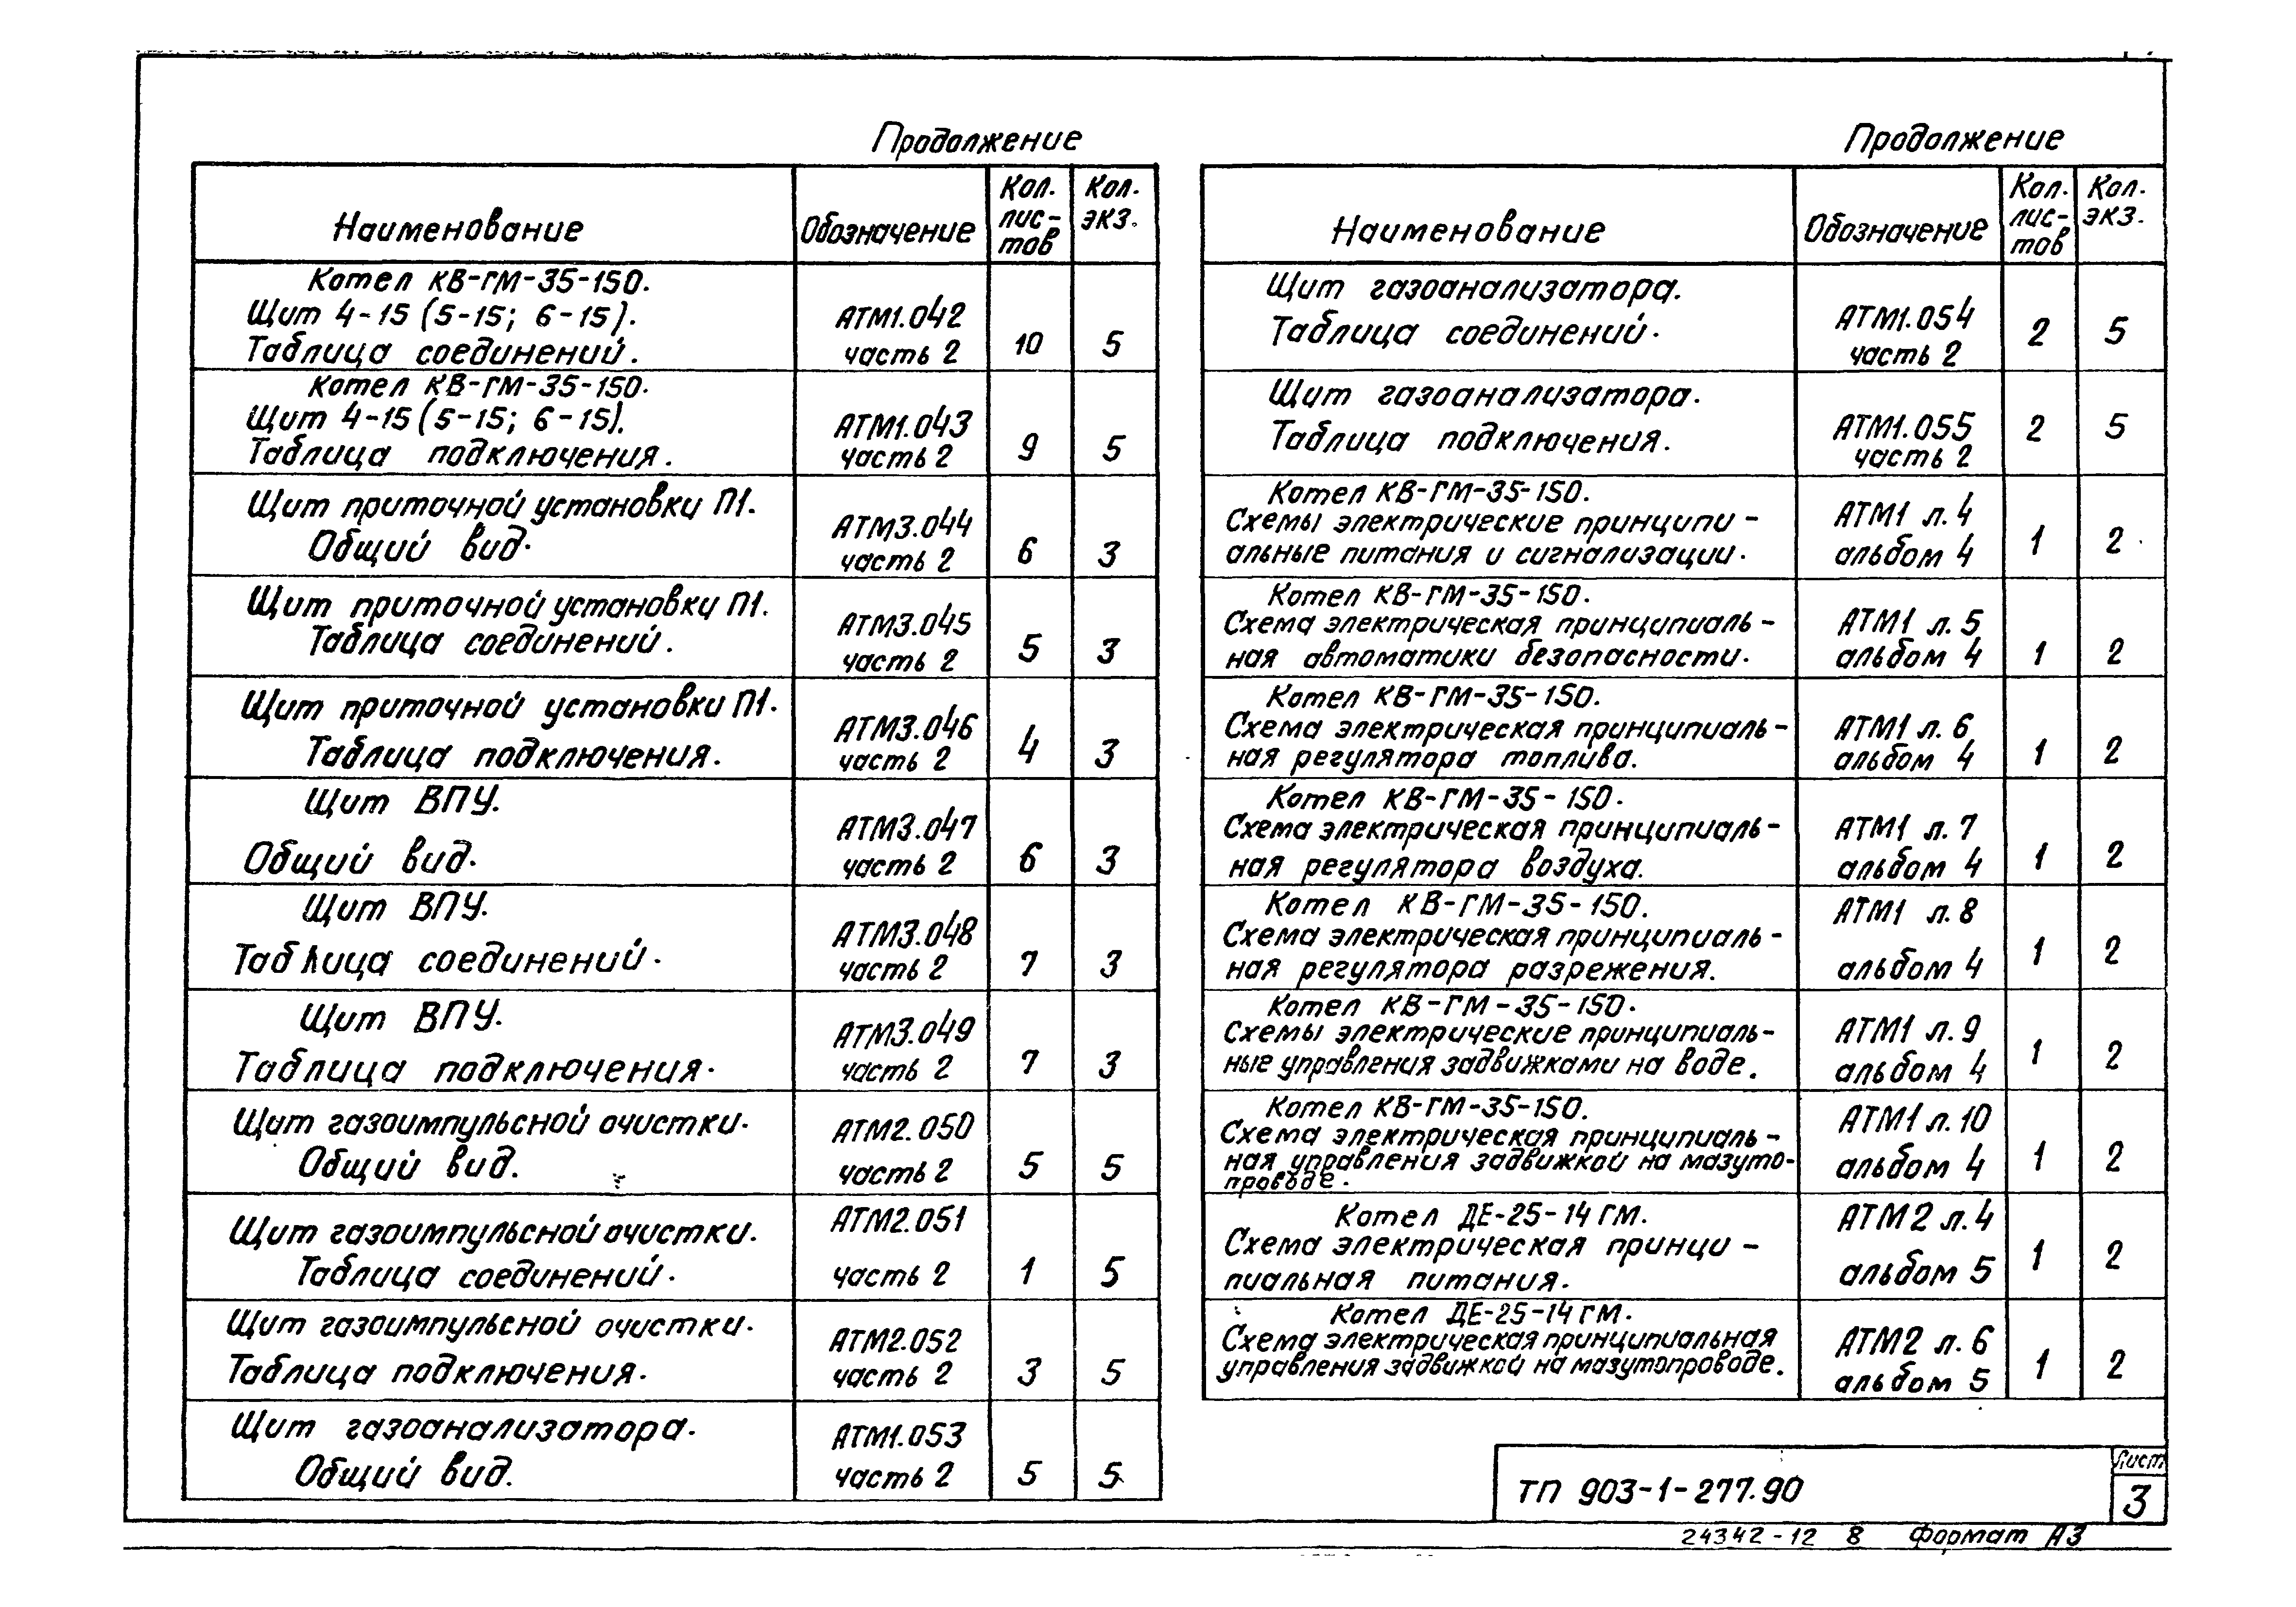 Продолжение
Наименование
Обозначение
Кол.
лис-
тов
Кол.
экз.
Котел КВ-ГМ-35-150.
Щит 4-15 (5-15; 6-15).
Таблица соединений.
АТМ1.042
часть 2
10
5
Котел КВ-ГМ-35-150.
Щит 4-15 (5-15; 6-15).
Таблица подключения.
АТМ1.043
часть 2
9
5
Щит приточной установки П1.
Общий вид.
АТМ3.044
часть 2
6
3
Щит приточной установки П1.
Таблица соединений.
АТМ3.045
часть 2
5
3
Щит приточной установки П1.
Таблица подключения.
АТМ3.046
часть 2
4
3
Щит ВПУ.
Общий вид.
АТМ3.047
часть 2
6
3
Щит ВПУ.
Таблица соединений.
АТМ3.048
часть 2
7
3
Щит ВПУ.
Таблица подключения.
АТМ3.049
часть 2
7
3
Щит газоимпульсной очистки.
Общий вид.
АТМ2.050
часть 2
5
5
Щит газоимпульсной очистки.
Таблица соединений.
АТМ2.051
часть 2
1
5
Щит газоимпульсной очистки.
Таблица подключения.
АТМ2.052
часть 2
3
5
Щит газоанализатора.
Общий вид.
АТМ1.053
часть 2
5
5
Продолжение
Наименование
Обозначение
Кол.
лис-
тов
Кол.
экз.
Щит газоанализатора.
Таблица соединений.
АТМ1.054
часть 2
2
5
Щит газоанализатора.
Таблица подключения.
АТМ1.055
часть 2
2
5
Котел КВ-ГМ-35-150.
Схемы электрические принципи-
альные питания и сигнализации.
АТМ1 л.4
альбом 4
1
2
Котел КВ-ГМ-35-150.
Схема электрическая принципиаль-
ная автоматики безопасности.
АТМ1 л.5
альбом 4
1
2
Котел КВ-ГМ-35-150.
Схема электрическая принципиаль-
ная регулятора топлива.
АТМ1 л.6
альбом 4
1
2
Котел КВ-ГМ-35-150.
Схема электрическая принципиаль-
ная регулятора воздуха.
АТМ1 л.7
альбом 4
1
2
Котел КВ-ГМ-35-150.
Схема электрическая принципиаль-
ная регулятора разрежения.
АТМ1 л.8
альбом 4
1
2
Котел КВ-ГМ-35-150.
Схемы электрические принципиаль-
ные управления задвижками на воде.
АТМ1 л.9
альбом 4
1
2
Котел КВ-ГМ-35-150.
Схема электрическая принципиаль-
ная управления задвижкой на мазуто-
проводе.
АТМ1 л.10
альбом 4
1
2
Котел ДЕ-25-14 ГМ.
Схема электрическая принци-
пиальная питания.
АТМ2 л.4
альбом 5
1
2
Котел ДЕ-25-14 ГМ.
Схема электрическая принципиальная
управления задвижкой на мазутопроводе.
АТМ2 л.6
альбом 5
1
2
ТП 903-1-277.90
Лист
3
24342-12 8 Формат А3